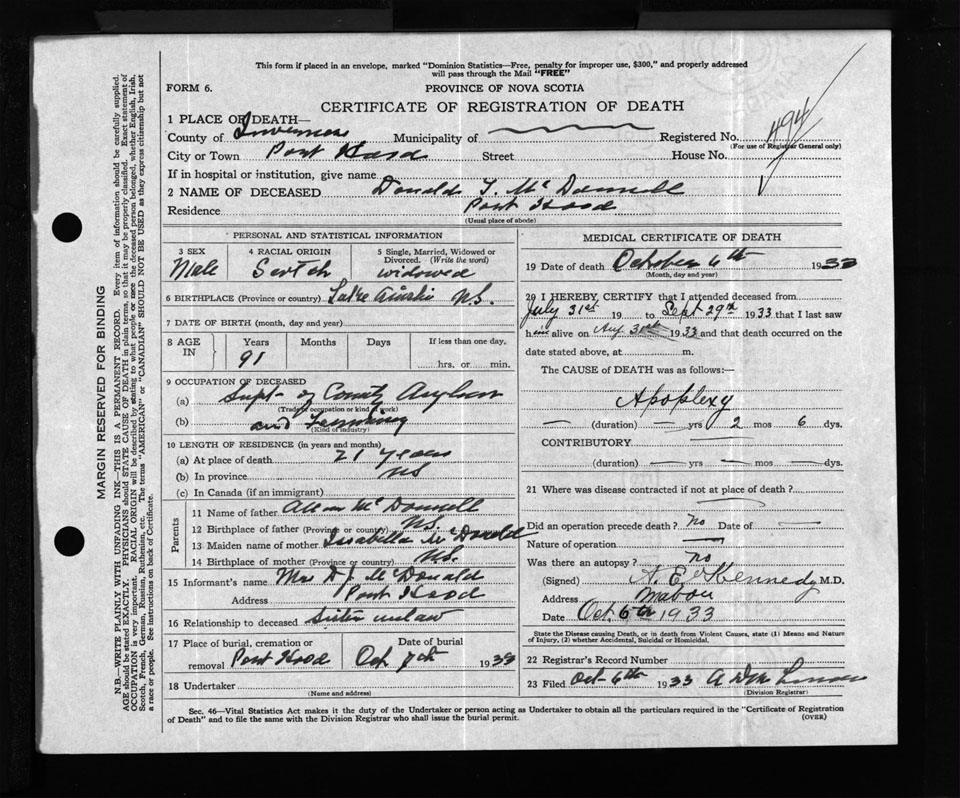 This form if placed in an envelope, marked "Dominion Statistics—Free, penalty for improper use, $300," and properly addressed
will pass through the Mail "FREE"
FORM 6.
PROVINCE OF NOVA SCOTIA
CERTIFICATE OF REGISTRATION OF DEATH
1 PLACE OF DEATH—
County of Inverness Municipality of Registered No. 494
(For use of Registrar General only)
City or Town Port Hood Street House No.
If in hospital or institution, give name
2 NAME OF DECEASED Donald McDonnell
Residence Port Hood
(Usual place of abode)
PERSONAL AND STATISTICAL INFORMATION
3 SEX 4 RACIAL ORIGIN 5 Single, Married, Widowed or
Divorced. (Write the word)
Male Scotch widowed
6 BIRTHPLACE (Province or country) Lake Ainslie N.S.
7 DATE OF BIRTH (month, day and year)
8 AGE IN Years Months Days If less than one day,
91 hrs. or min.
9 OCCUPATION OF DECEASED
(a) Supt of County Asylum
(Trade, occupation or kind of work)
(b) and Farming
(Kind of industry)
10 LENGTH OF RESIDENCE (in years and months)
(a) At place of death 21 years
(b) In province NS
(c) In Canada (if an immigrant)
Parents
11 Name of father McDonnell
12 Birthplace of father (Province or country) N.S.
13 Maiden name of mother Isabella McDonald
14 Birthplace of mother (Province or country) N.S.
15 Informant's name Mrs D.J. McDonald
Address Port Hood
16 Relationship to deceased Sister inlaw
17 Place of burial, cremation or Date of burial
removal Port Hood Oct 7th 1933
18 Undertaker
(Name and address)
MEDICAL CERTIFICATE OF DEATH
19 Date of death October 6th 1933
(Month, day and year)
20 I HEREBY CERTIFY that I attended deceased from
July 31st 19 to Sept 29th 1933 that I last saw
him alive on Aug 31st 1933 and that death occurred on the
date stated above, at m.
The CAUSE of DEATH was as follows:—
Apoplexy
— (duration) — yrs 2 mos 6 dys.
CONTRIBUTORY
(duration) — yrs — mos — dys.
21 Where was disease contracted if not at place of death?
Did an operation precede death? No Date of —
Nature of operation —
Was there an autopsy? no
(Signed) Kennedy M.D.
Address Mabou
Date Oct 6th 1933
State the Disease causing Death, or in death from Violent Causes, state (1) Means and Nature
of Injury, (2) whether Accidental, Suicidal or Homicidal.
22 Registrar's Record Number
23 Filed Oct 6th 1933
(Division Registrar)
Sec. 46—Vital Statistics Act makes it the duty of the Undertaker or person acting as Undertaker to obtain all the particulars required in the "Certificate of Registration
of Death" and to file the same with the Division Registrar who shall issue the burial permit.
(OVER)
MARGIN RESERVED FOR BINDING
N.B.—WRITE PLAINLY, WITH UNFADING INK—THIS IS A PERMANENT RECORD. Every item of information should be carefully supplied.
AGE should be stated EXACTLY. PHYSICIANS should STATE CAUSE OF DEATH in plain terms, so that it may be properly classified. Exact statement of
OCCUPATION is very important. RACIAL ORIGIN will be described by stating to what people or race the deceased person belonged, whether English, Irish,
Scotch, French, German, Russian, Ruthenian, etc. The terms "AMERICAN" or "CANADIAN" SHOULD NOT BE USED as they express citizenship but not
a race or people. See instructions on back of Certificate.